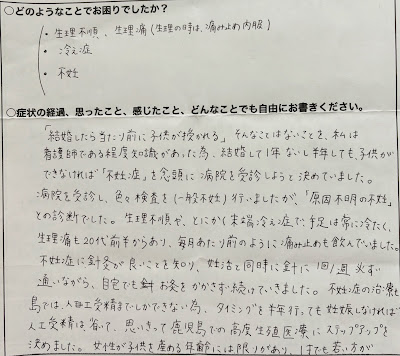 ○どのようなことでお困りでしたか？
・生理不順、生理痛（生理の時は、痛み止め内服）
・冷え症
・不妊
○症状の経過、思ったこと、感じたこと、どんなことでも自由にお書きください。
「結婚したら当たり前に子供が授かれる」そんなことはないことを、私は
看護師である程度知識があった為、結婚して1年ないし半年しても、子供が
できなければ「不妊症」を念頭に病院を受診しようと決めていました。
病院を受診し、色々検査を（一般不妊）行いましたが、「原因不明の不妊」
との診断でした。生理不順や、とにかく末端冷え症で、手足は常に冷たく、
生理痛も20代前半からあり、毎月あたり前のように痛み止めも飲んでいました。
不妊症に針灸が良いことを知り、妊活と同時に針に1回/1週必ず
通いながら、自宅でも針お灸をかかさず続けていきました。不妊症の治療も
島では、人工受精までしかできない為、タイミングを半年行っても妊娠しなければ
人工受精は省いて、思いきって鹿児島での高度生殖医療にステップアップを
決めました。女性が子供を産める年齢には限りがあり、1才でも若い方が